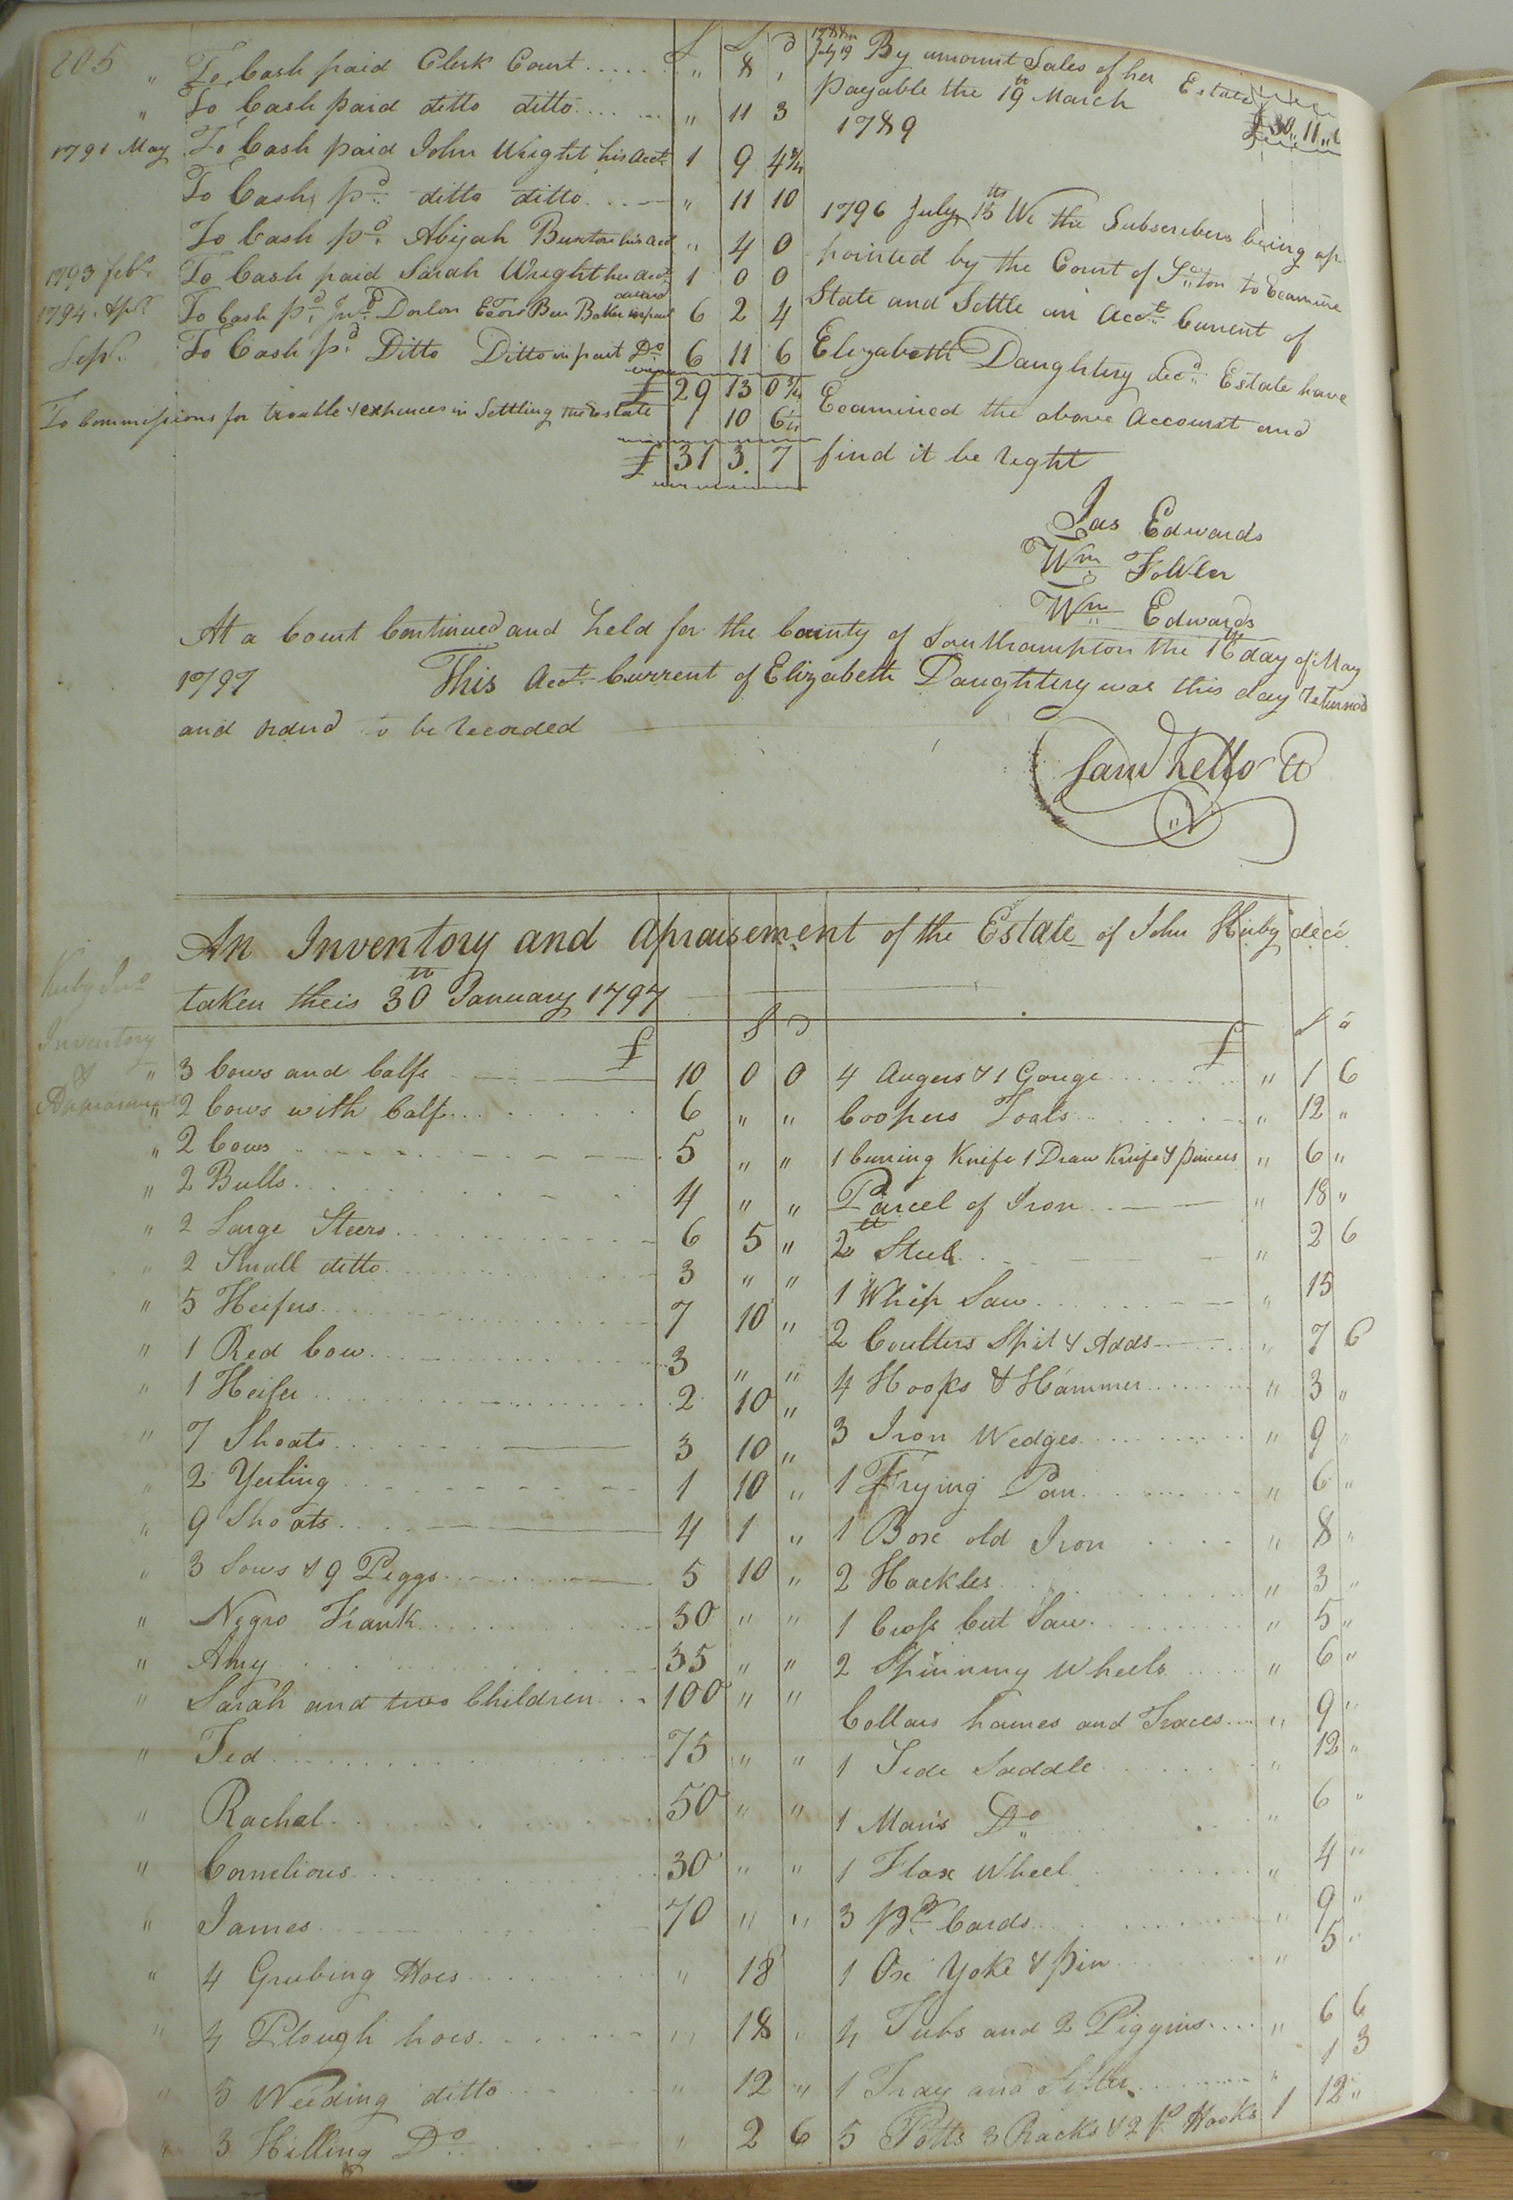 205
" To Cash paid Clerk Court ...... " 8 "
" To Cash paid ditto ditto ...... " 11 3
1791 May To Cash paid John Wright his acct 1 9 4 3/4
To Cash pd ditto ditto .... " 11 10
To Cash pd Abijah Buxton his acct " 4 0
1793 Feby To Cash paid Sarah Wright her acct 1 0 0
1794 Apl To Cash pd Jno Doxlon Exors Ben Baker in part 6 2 4
Sepr To Cash pd Ditto Ditto in part Do 6 11 6
£ 29 13 0 3/4
To Commissions for trouble & expences in Settling the Estate 1 10 6 1/4
£ 31 3 7
July 19 By amount Sales of her Estate
payable the 19th March
1789 £ 30 " 11 "
1796 July 15th We the Subscribers being ap
pointed by the Court of Soton to Examine
State and Settle an Acct Current of
Elizabeth Daughtery decd Estate have
Examined the above Account and
find it be right
Jas Edwards
Wm Fowler
Wm Edwards
At a Court Continued and held for the County of Southampton the 16th day of May
1797 This Acct Current of Elizabeth Daughtery was this day returned
and ordrd to be recorded
Saml Kello Cl
An Inventory and Apraisement of the Estate of John Kirby decd
taken theis 30th January 1797
Kirby Jno
Inventory
&
Appraisement
£ S D
" 3 Cows and Calfs 10 0 0
" 2 Cows with Calf 6 " "
" 2 Cows 5 " "
" 2 Bulls 4 " "
" 2 Large Steers 6 5 "
" 2 Small ditto 3 " "
" 5 Heifers 7 10 "
" 1 Red Cow 3 " "
" 1 Heifer 2 10 "
" 7 Shoats 3 10 "
" 2 Yerling 1 10 "
" 9 Shoats 4 1 "
" 3 Sows & 9 Piggs 5 10 "
" Negro Frank 50 " "
" Amy 35 " "
" Sarah and two Children 100 " "
" Ted 75 " "
" Rachal 50 " "
" Cornelious 30 " "
" James 70 " "
" 4 Grubing Hoes " 18
" 4 Plough hoes " 18 "
" 3 Weeding ditto " 12 "
" 3 Hilling Do " 2 6
£ S d
4 Augers & 1 Gouge " 1 6
Coopers Tools " 12 "
1 Curring Knife 1 Draw Knife & pincers " 6 "
Parcel of Iron " 18 "
2tt Steel " 2 6
1 Whip Saw " 15
2 Coulters Spit & Adds " 7 6
4 Hooks & Hammer " 3 "
3 Iron Wedges " 9 "
1 Frying Pan " 6 "
1 Box old Iron " 8 "
2 Hackles " 3 "
1 Cross Cut Saw " 5 "
2 Spinning Wheels " 6 "
Collars hames and Traces " 9 "
1 Side Saddle " 12 "
1 Mans Do " 6 "
1 Flax Wheel " 4 "
3 pr Cards " 9 "
1 Ox Yoke & pin " 5 "
4 Tubs and 2 Piggins " 6 6
1 Tray and Sifter " 1 3
5 Potts 3 Racks & 2 pr Hooks 1 12 "